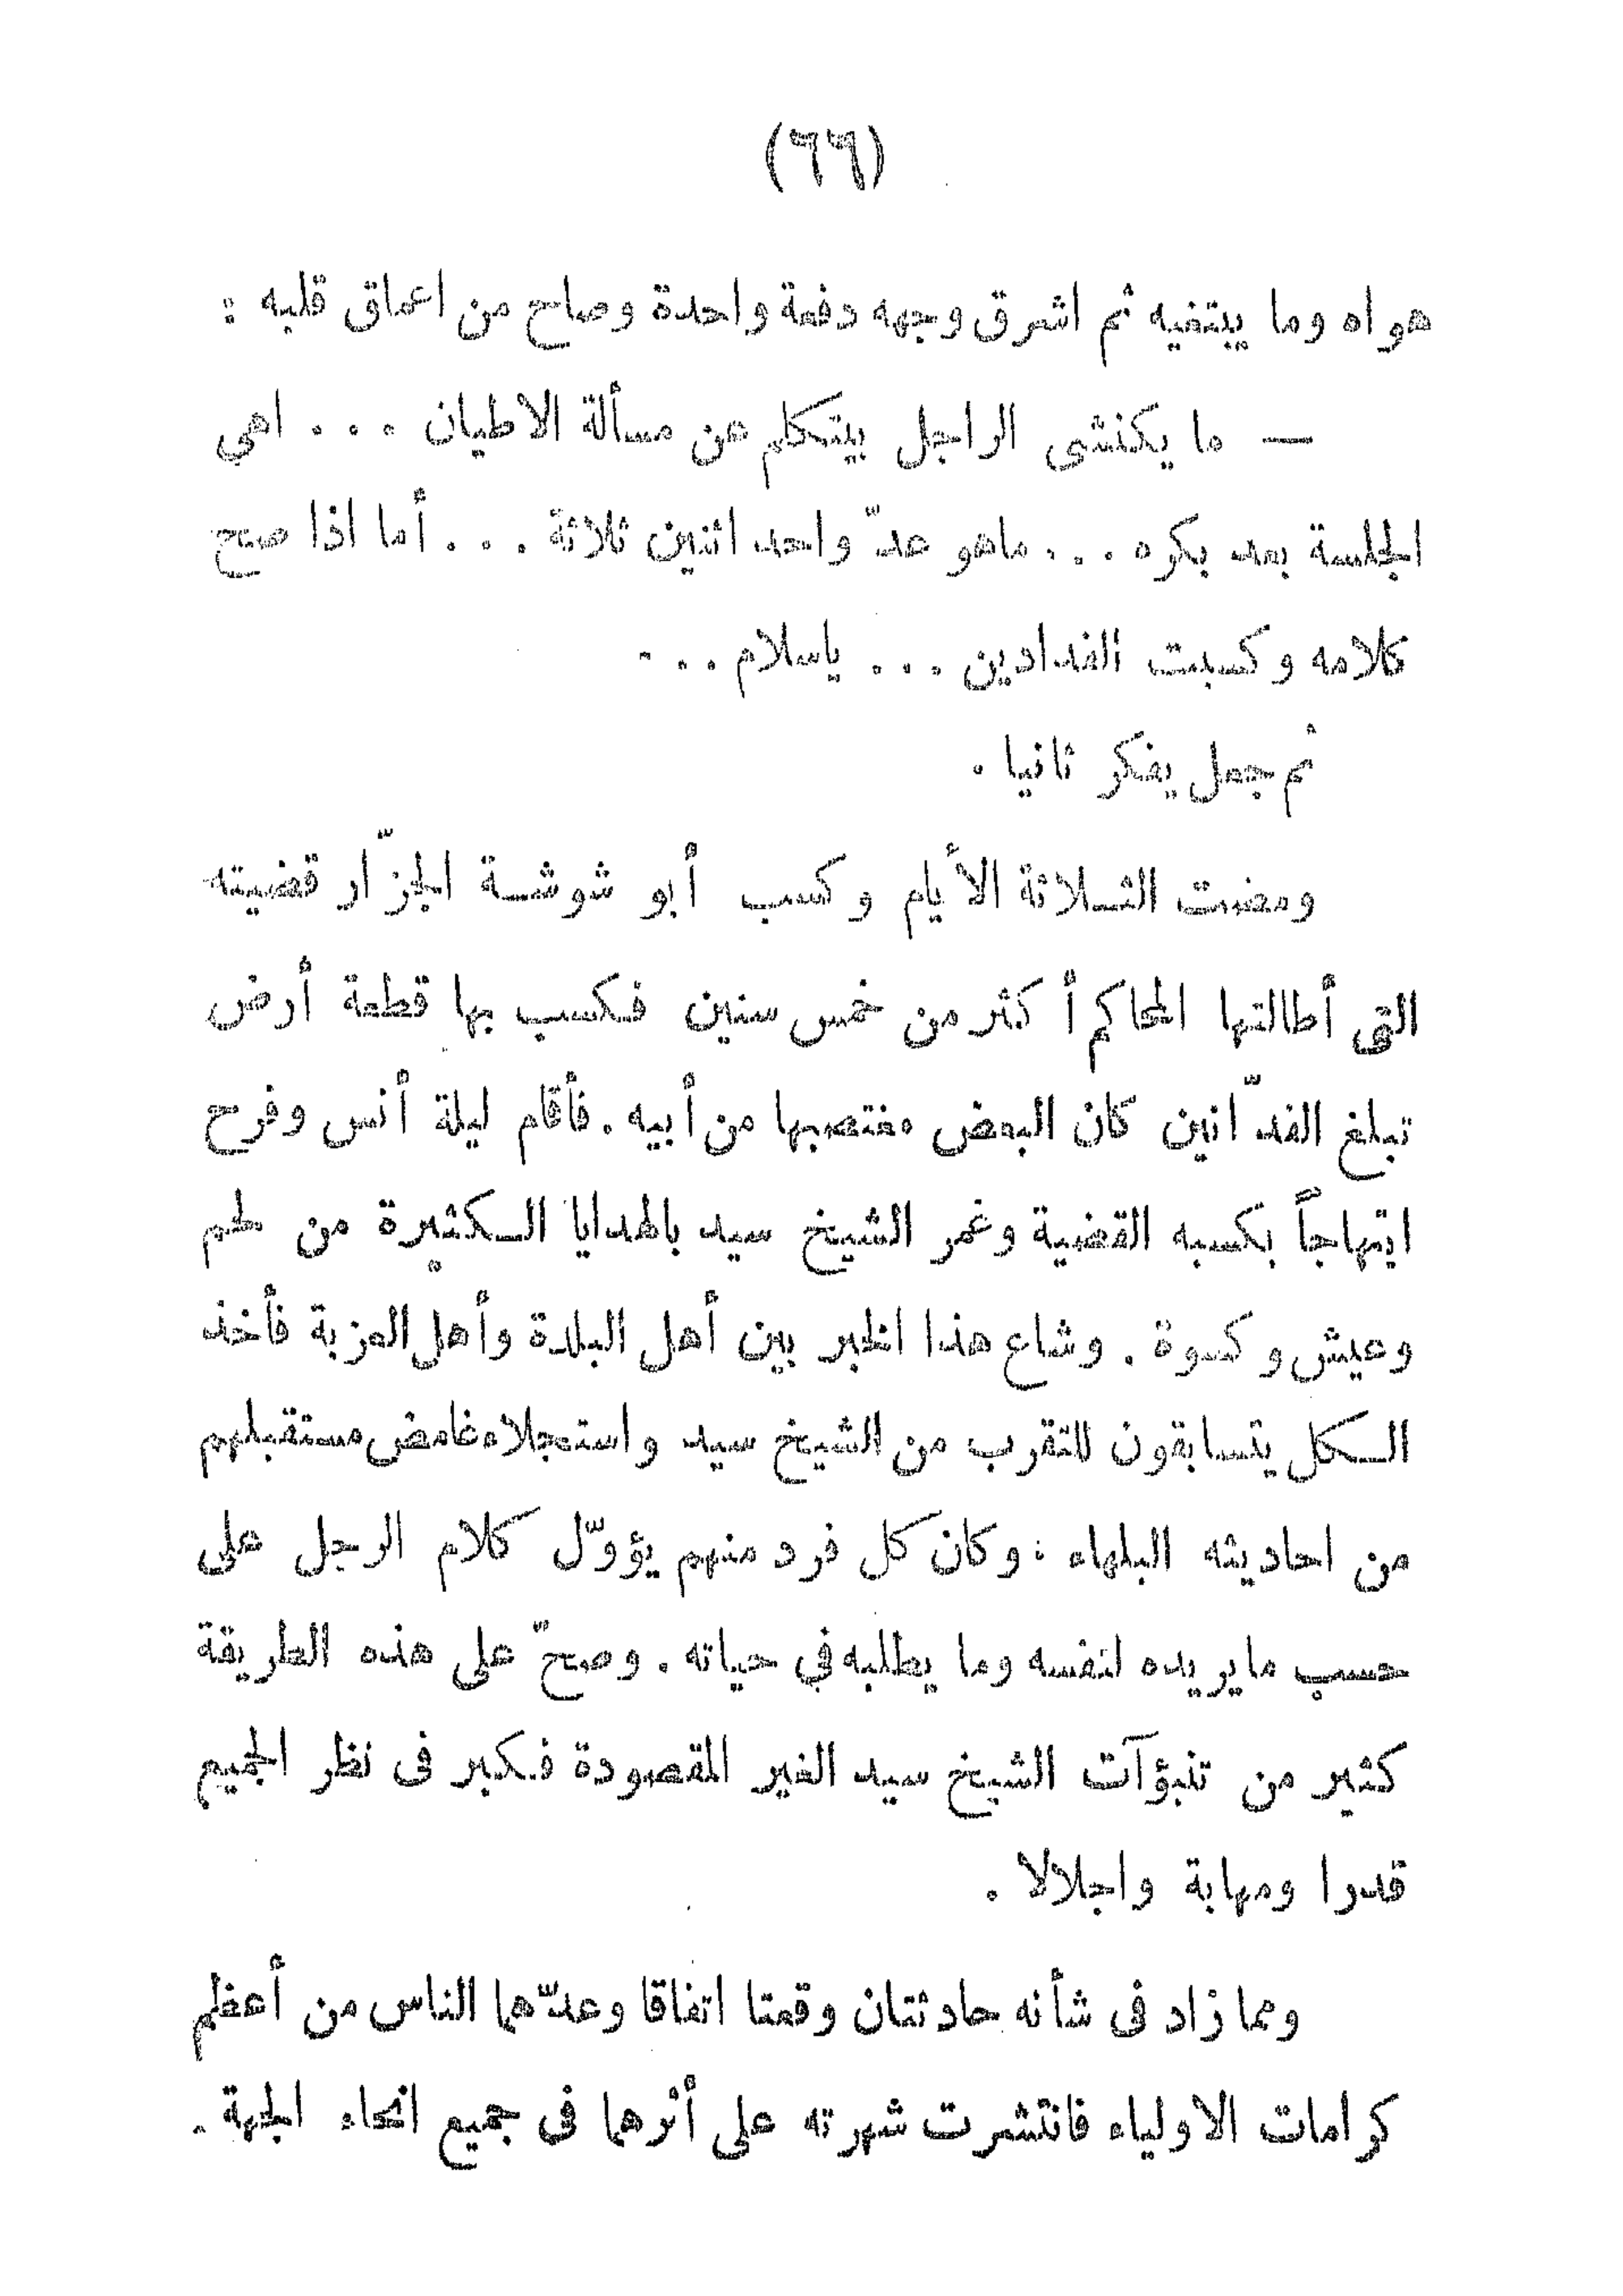 (٦٦)
هواه وما يبتغيه ثم اشرق وجهه دفعة واحدة وصاح من اعماق قلبه :
— ما يكنشى الراجل بيتكلم عن مسألة الاطيان . . . اهي
الجلسة بعد بكره . . . ماهو عدّ واحد اثنين ثلاثة . . . أما اذا صح
كلامه وكسبت الفدادين . . . ياسلام . . .
ثم جعل يفكر ثانيا .
ومضت الثلاثة الأيام وكسب أبو شوشة الجزّار قضيته
التى أطالتها المحاكم أكثر من خمس سنين فكسب بها قطعة أرض
تبلغ الفدّانين كان البعض مغتصبها من أبيه . فأقام ليلة أنس وفرح
ابتهاجاً بكسبه القضية وغمر الشيخ سيد بالهدايا الكثيرة من لحم
وعيش وكسوة . وشاع هذا الخبر بين أهل البلدة وأهل العزبة فأخذ
الكل يتسابقون للتقرب من الشيخ سيد واستجلاء غامض مستقبلهم
من احاديثه البلهاء : وكان كل فرد منهم يؤوّل كلام الرجل على
حسب مايريده لنفسه وما يطلبه في حياته . وصحّ على هذه الطريقة
كثير من تنبؤآت الشيخ سيد الغير المقصودة فكبر فى نظر الجميع
قدرا ومهابة واجلالا .
ومما زاد فى شأنه حادثتان وقعتا اتفاقا وعدّهما الناس من أعظم
كرامات الاولياء فانتشرت شهرته على أثرهما فى جميع انحاء الجهة .